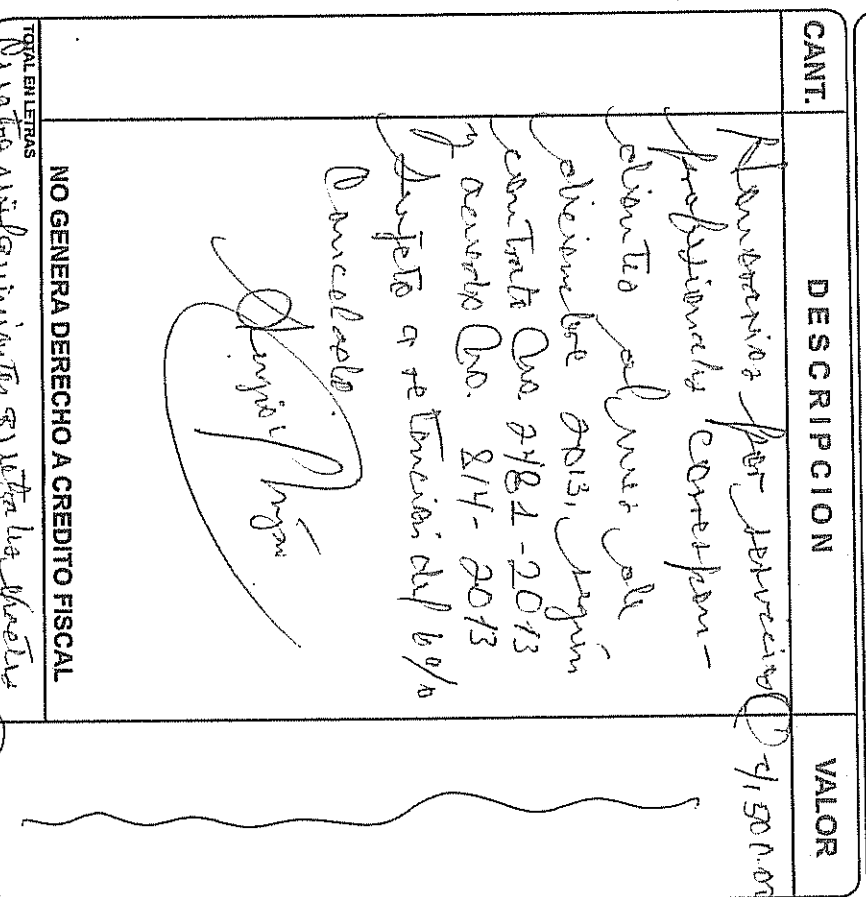 CANT. DESCRIPCION VALOR
Honorarios por servicios Q 4,500.00
profesionales correspon-
dientes al mes de
diciembre 2013, según
contrato No. 2481-2013
y acuerdo No. 814-2013
Sujeto a retención del 6%
Cancelado.
NO GENERA DERECHO A CREDITO FISCAL
TOTAL EN LETRAS
Cuatro mil quinientos quetzales exactos